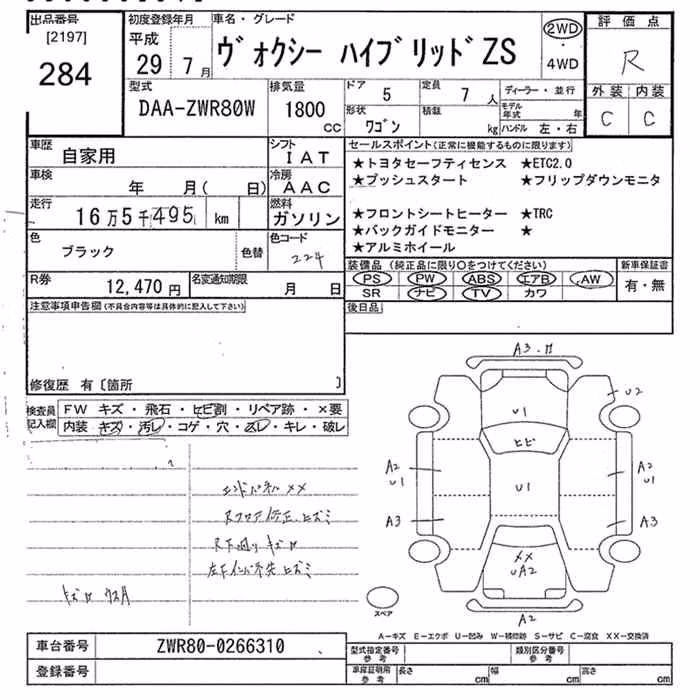 出品番号 [2197] 284
初度登録年月 平成 29年 7月
車名・グレード ヴォクシー ハイブリッドZS
2WD・4WD
評価点 R
外装 内装
C C
型式 DAA-ZWR80W
排気量 1800 cc
ドア 5
定員 7 人
形状 ワゴン
積載 kg
ディーラー・並行
モデル年式 年
ハンドル 左・右
車歴 自家用
シフト IAT
車検 年 月( 日)
冷房 AAC
走行 16万5千495 km
燃料 ガソリン
色 ブラック 色替
色コード 224
R券 12,470 円
名変通知期限 月 日
セールスポイント(正常に機能するものに限ります)
★トヨタセーフティセンス ★ETC2.0
★プッシュスタート ★フリップダウンモニタ
★フロントシートヒーター ★TRC
★バックガイドモニター ★
★アルミホイール
装備品(純正品に限り○をつけてください)
PS PW ABS エアB AW
SR ナビ TV カワ
新車保証書 有・無
後日品
注意事項申告欄(不具合内容等は具体的に記入して下さい)
修復歴 有〔箇所 〕
検査員記入欄
FW キズ・飛石・ヒビ割・リペア跡・×要
内装 キズ・汚レ・コゲ・穴・スレ・キレ・破レ
エンドパネル XX
Rフロア修正、ヒズミ
R下廻り キズ
左下インパネ先 ヒズミ
A3
U2
U1
ヒビ
A2
U1
U1
A2
U1
A3
A3
XX
UA2
A2
スペア
A-キズ E-エクボ U-凹み W-補修跡 S-サビ C-腐食 XX-交換済
車台番号 ZWR80-0266310
登録番号
型式指定番号 参考
類別区分番号 参考
車庫証明用 参考
長さ cm 幅 cm 高さ cm